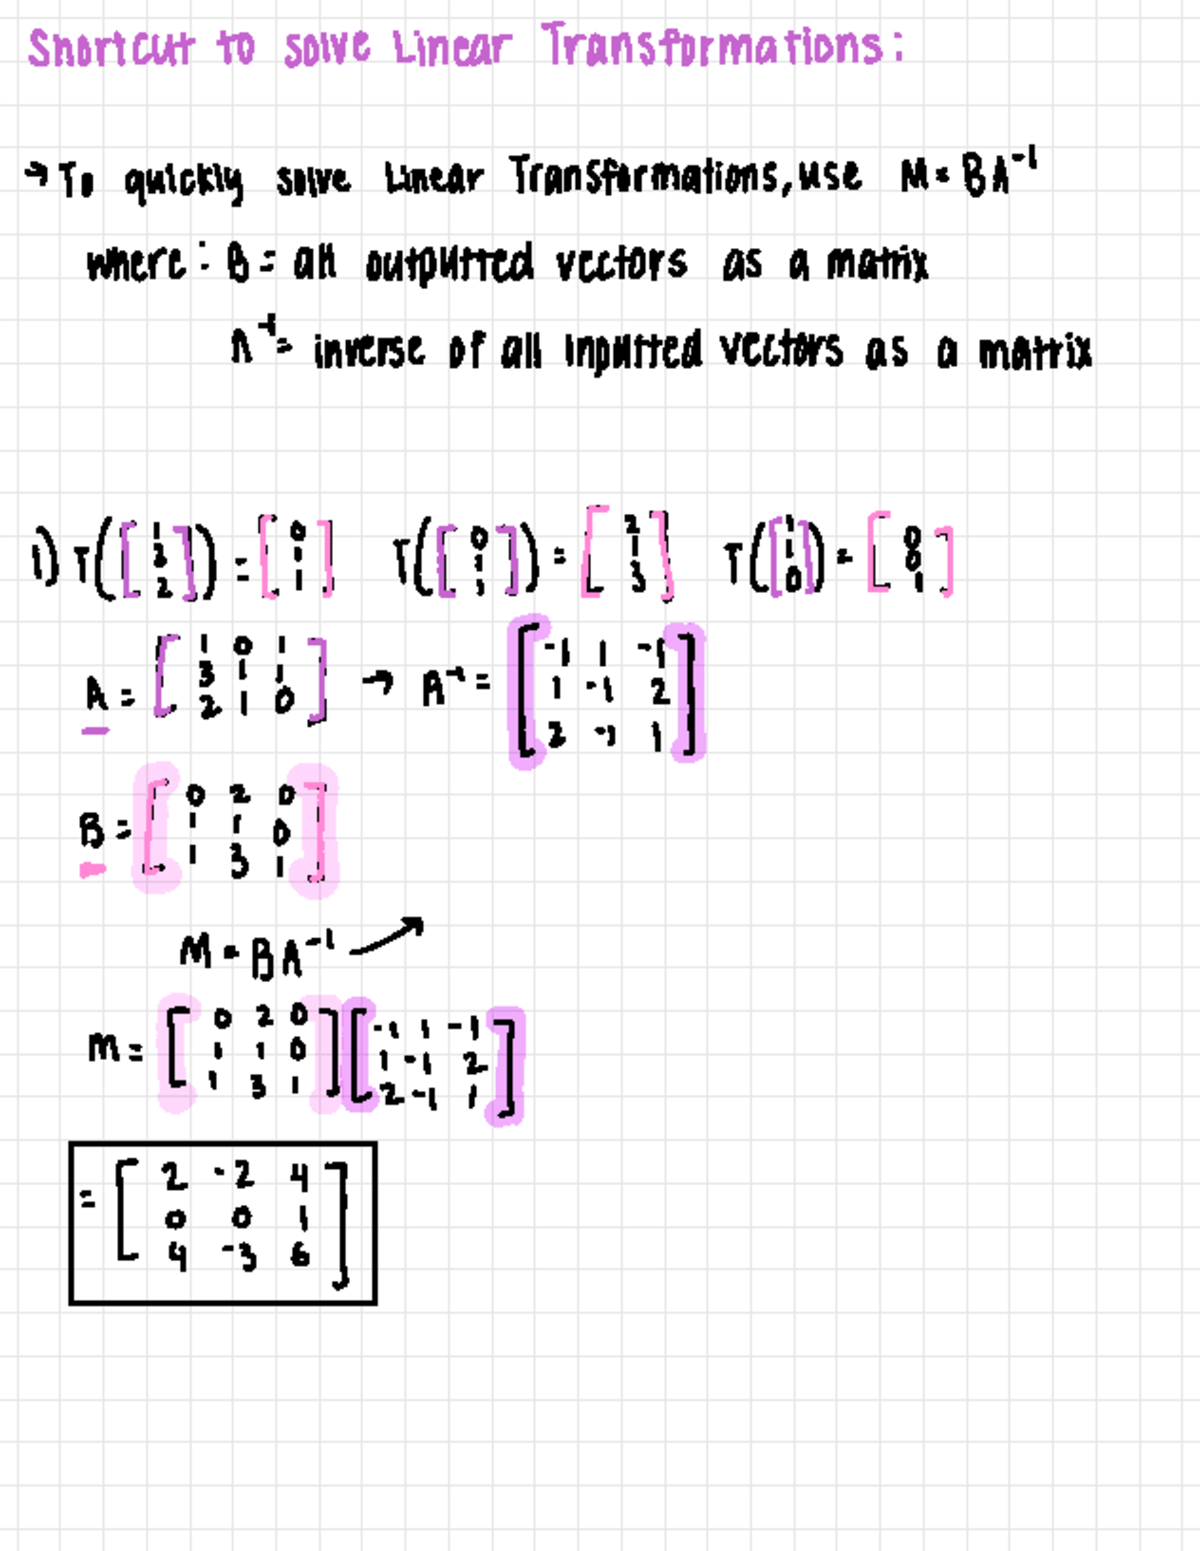 Shortcut to solve Linear Transformations:
→ To quickly solve Linear Transformations, use M = BA⁻¹
where: B = all outputted vectors as a matrix
A⁻¹ = inverse of all inputted vectors as a matrix
1) T([1 3 2]) = [0 1 1] T([0 1 1]) = [2 1 3] T([1 1 0]) = [0 0 1]
A = [1 0 1 → A⁻¹ = [-1 1 -1
3 1 1 1 -1 2
2 1 0] 2 -1 1]
B = [0 2 0
1 1 0
1 3 1]
M = BA⁻¹
M = [0 2 0 [-1 1 -1
1 1 0 1 -1 2
1 3 1] 2 -1 1]
= [2 -2 4
0 0 1
4 -3 6]